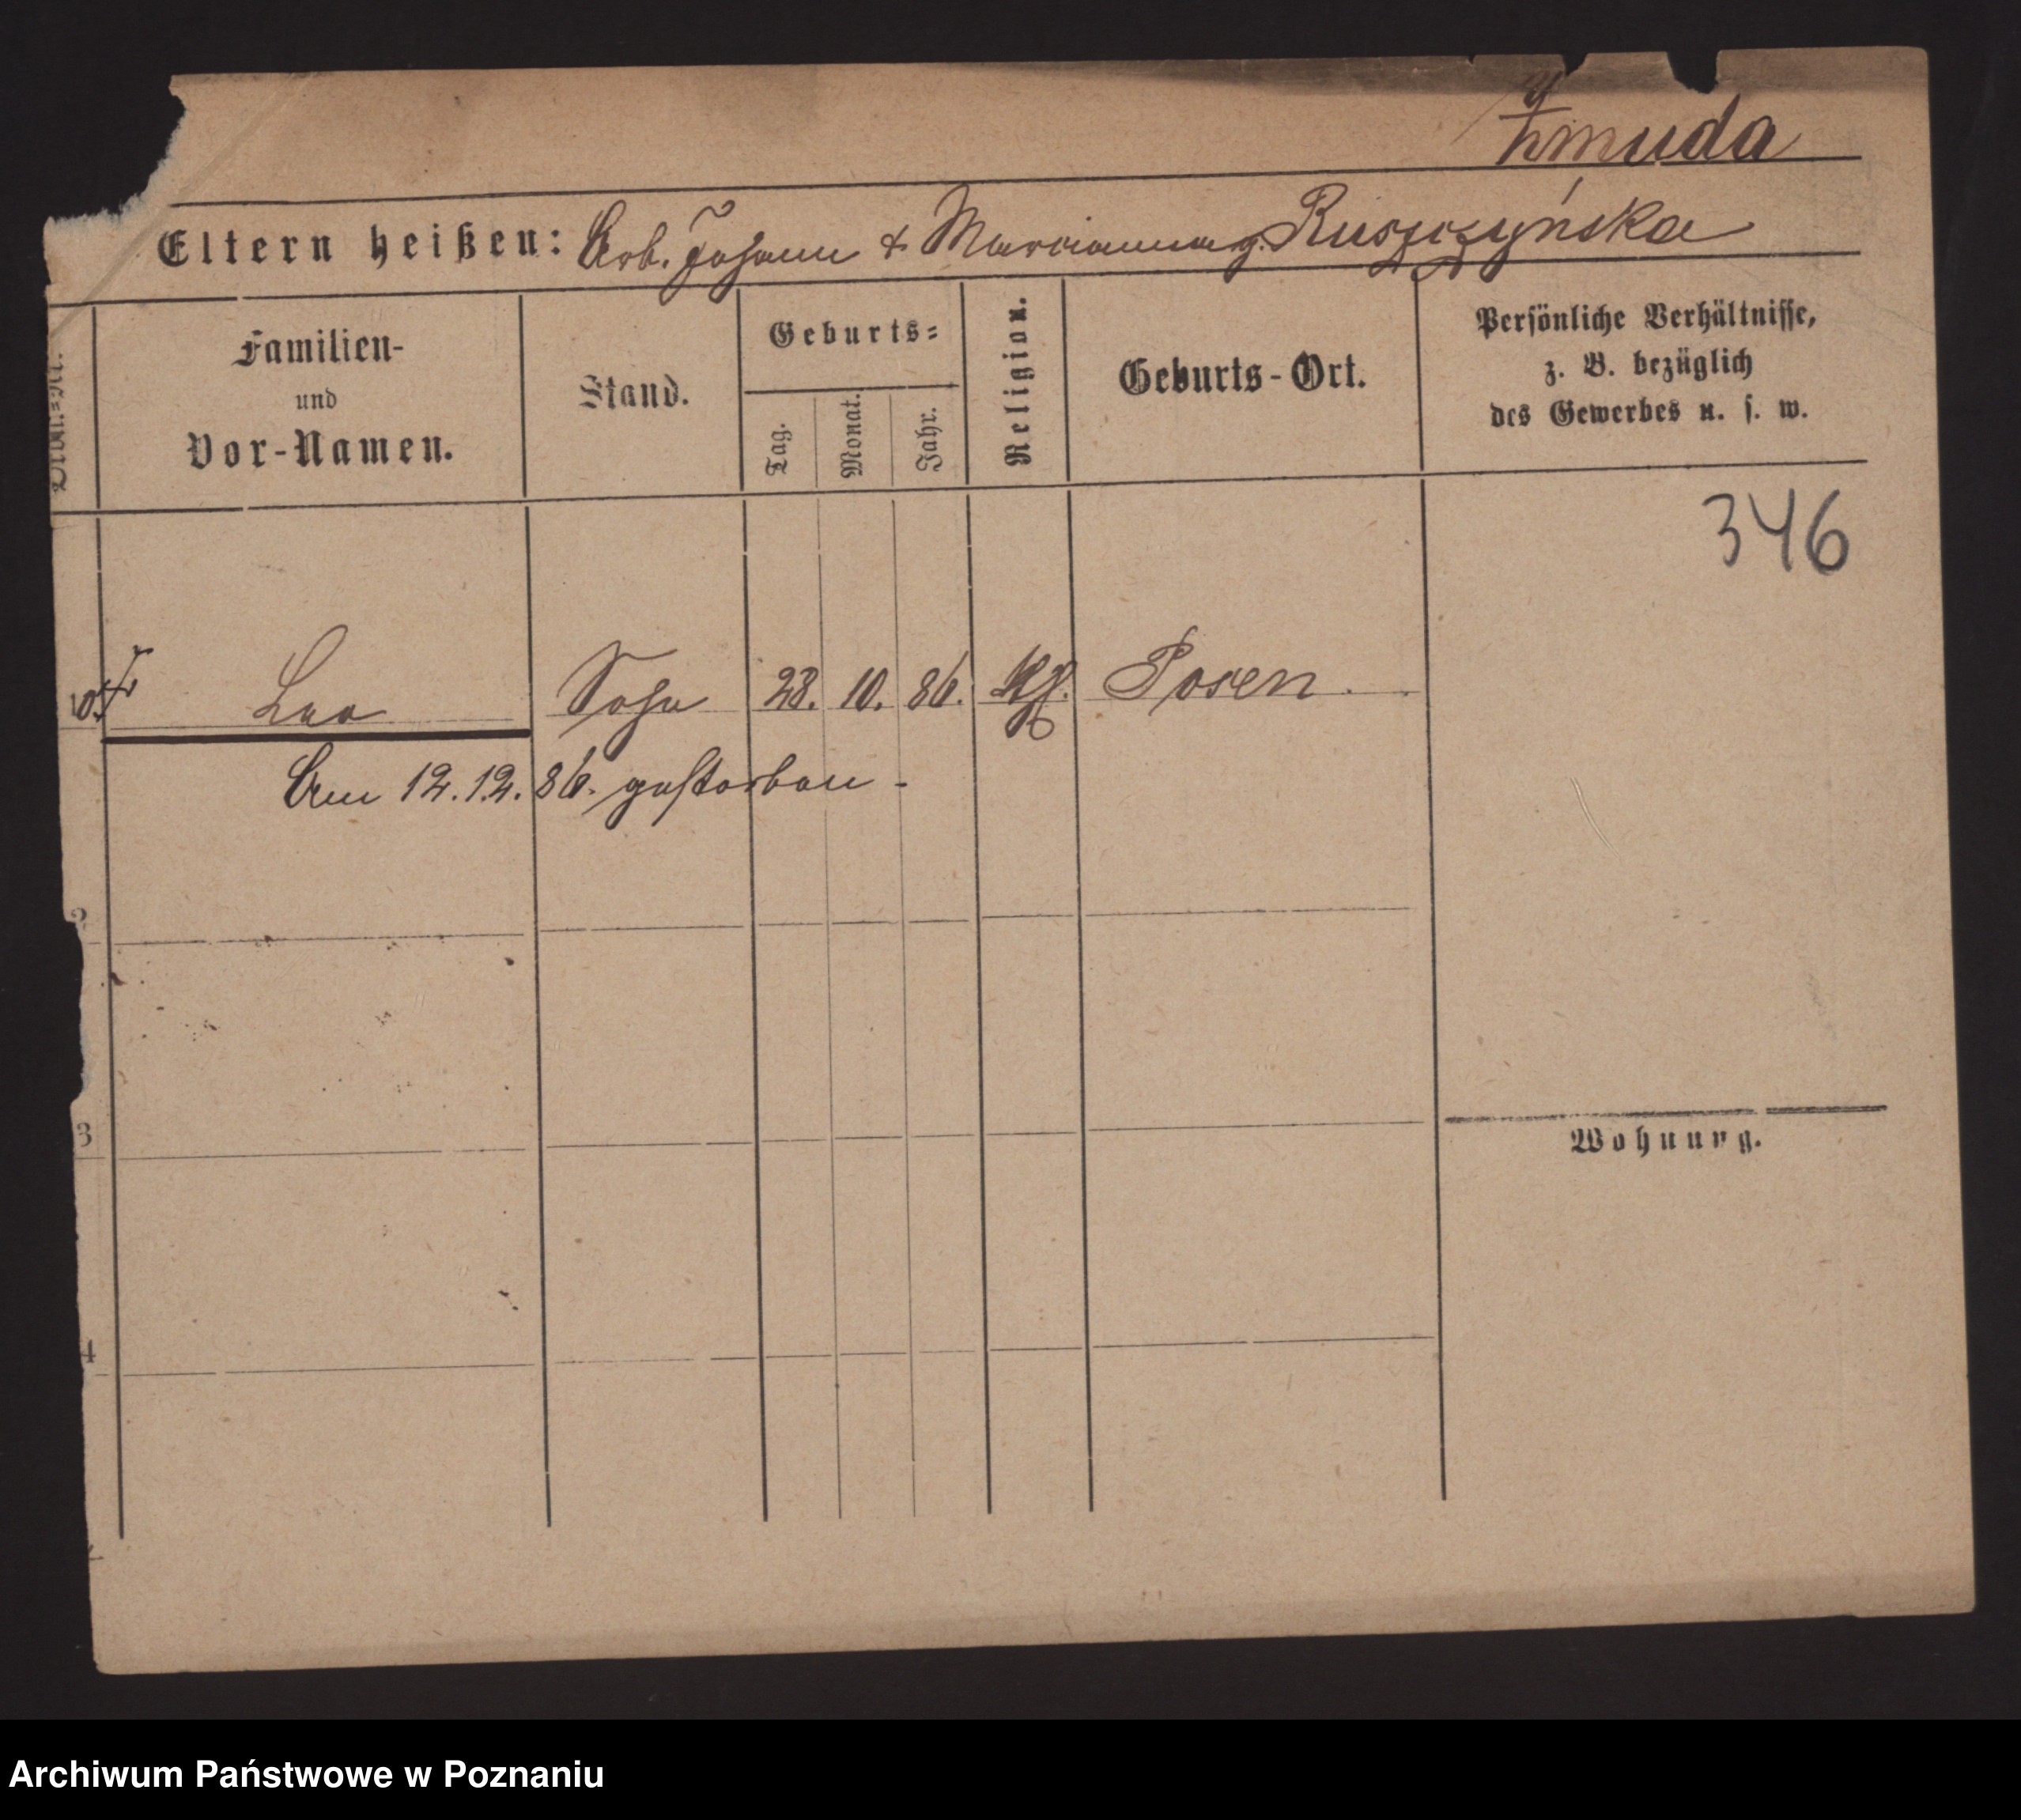 Żmuda
Eltern heißen: Arb. Johann & Marianna g. Ruszczyńska
Ordn.=Nr.
Familien-
und
Vor-Namen.
Stand.
Geburts=
Tag.
Monat.
Jahr.
Religion.
Geburts-Ort.
Persönliche Verhältnisse,
z. B. bezüglich
des Gewerbes u. s. w.
346
Leo Sohn 28. 10. 86. Kth. Posen.
Am 12.12.86. gestorben.
2
3
Wohnung.
4
Archiwum Państwowe w Poznaniu